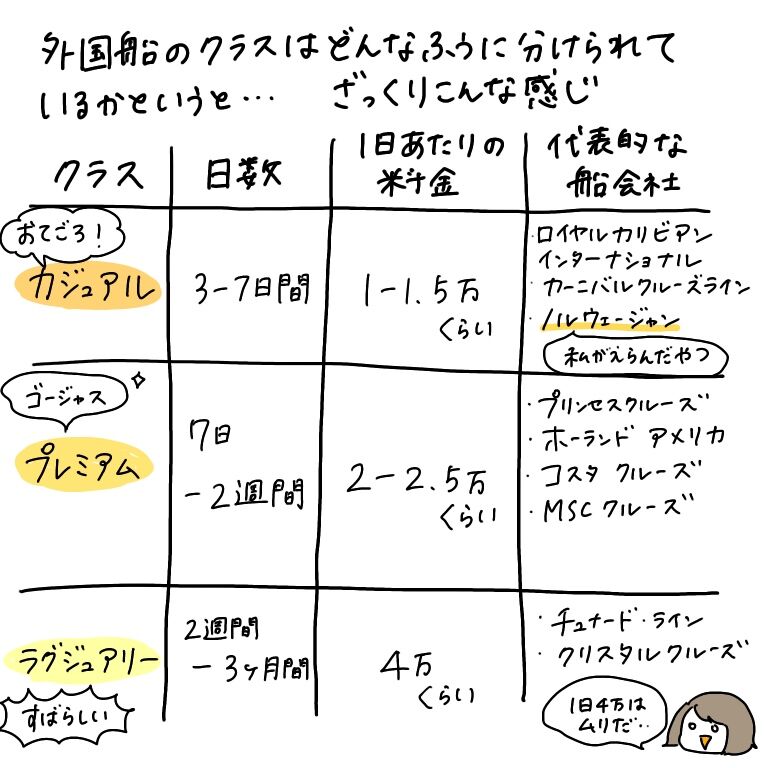 外国船のクラスはどんなふうに分けられて
いるかというと… ざっくりこんな感じ
クラス
日数
1日あたりの
料金
代表的な
船会社
おてごろ!
カジュアル
3-7日間
1-1.5万
くらい
・ロイヤルカリビアン
インターナショナル
・カーニバルクルーズライン
・ノルウェージャン
私がえらんだやつ
ゴージャス
プレミアム
7日
-2週間
2-2.5万
くらい
・プリンセスクルーズ
・ホーランド アメリカ
・コスタ クルーズ
・MSC クルーズ
ラグジュアリー
すばらしい
2週間
-3ヶ月間
4万
くらい
・チュナード・ライン
・クリスタルクルーズ
1日4万は
ムリだ…